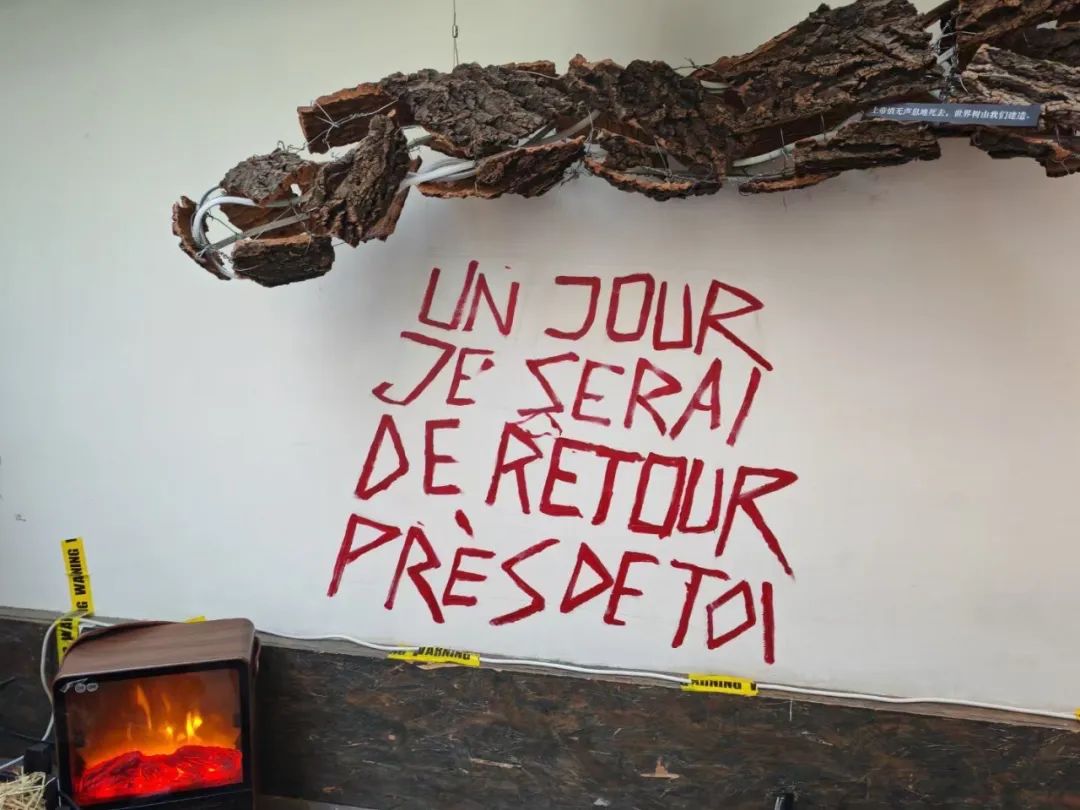 上帝悄无声息地死去，世界树由我们建造。
UN JOUR
JE SERAI
DE RETOUR
PRÈS DE TOI
WARNING
WARNING
WARNING